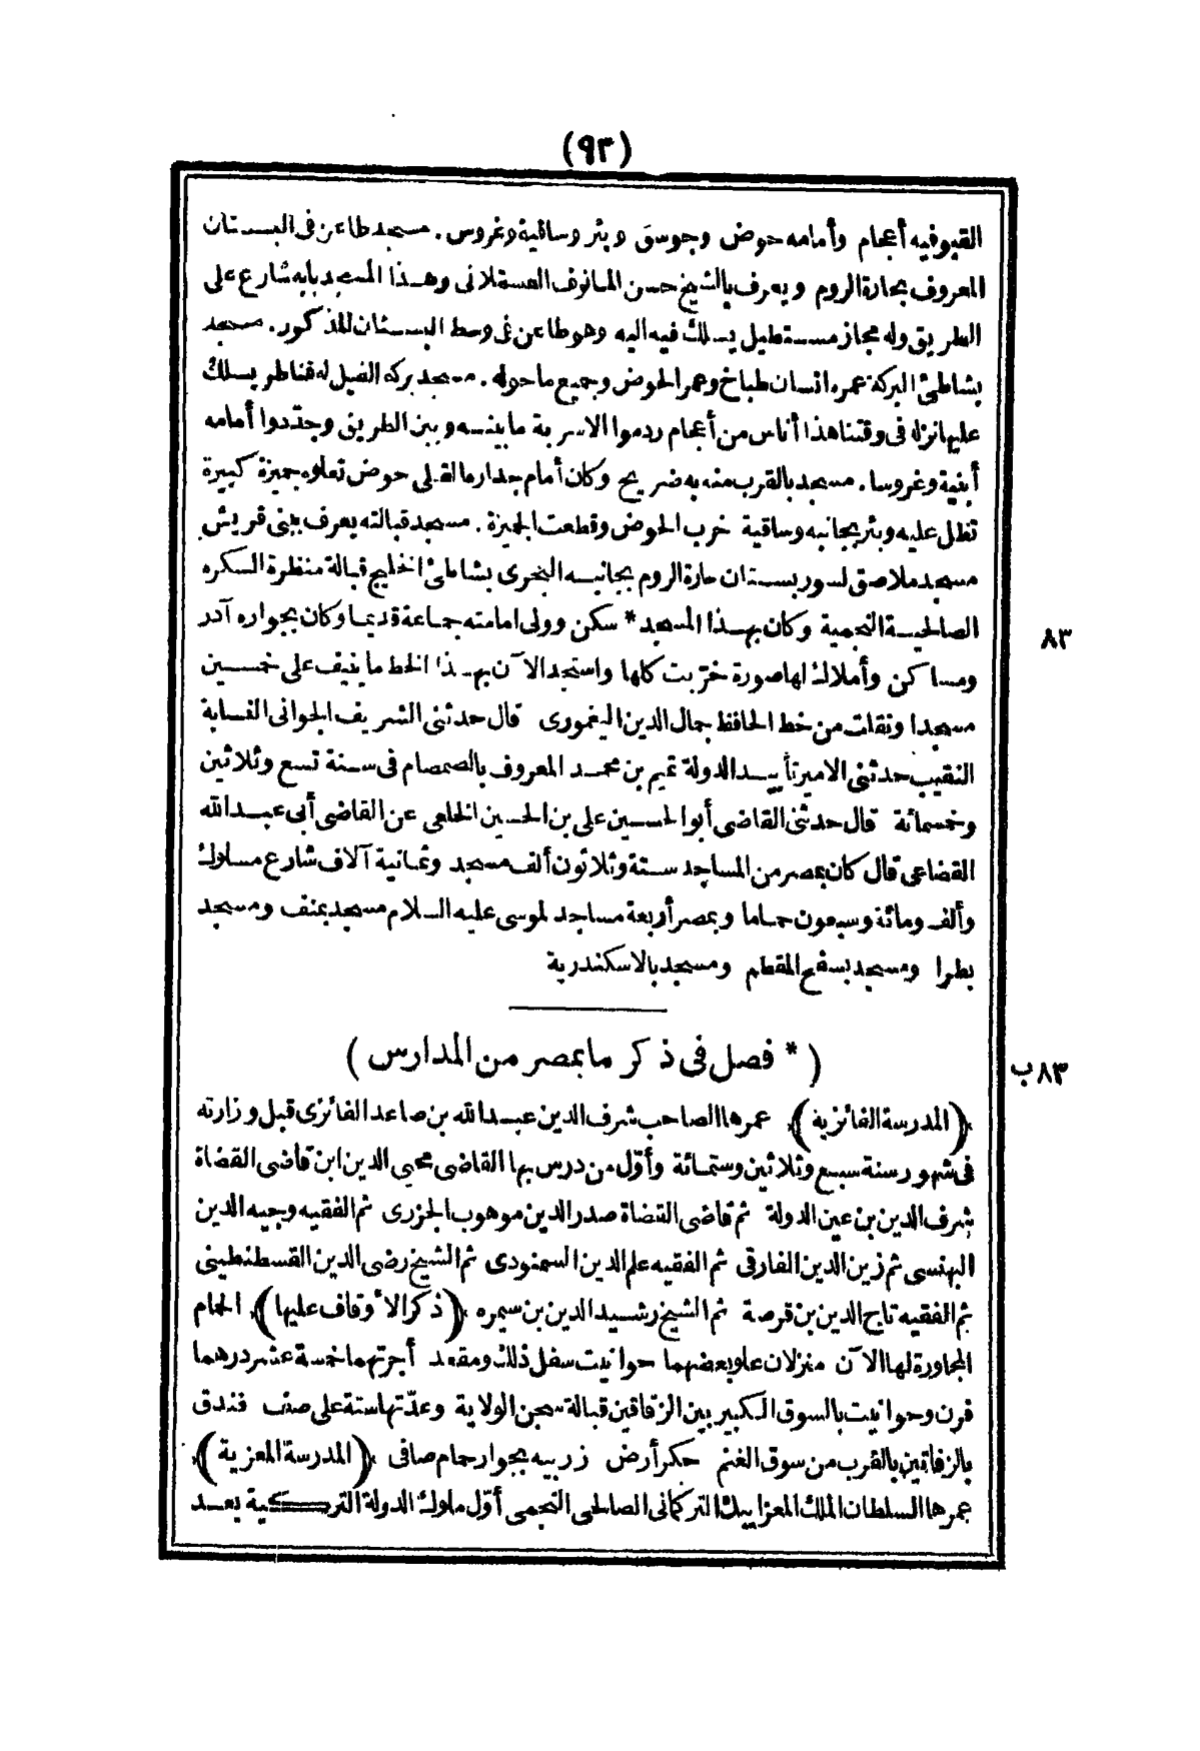 (٩٣)
القبو فيه أعجام وأمامه حوض وجوسق وبئر وساقية وغروس. مسجد طاعن فى البستان
المعروف بحارة الروم ويعرف بالشيخ حسن المأنوف العسقلانى وهذا المسجد بابه شارع على
الطريق وله مجاز مستطيل يسلك فيه اليه وهو طاعن فى وسط البستان المذكور. مسجد
بشاطئ البركة عمره انسان طباخ وعمر الحوض وجميع ما حوله. مسجد بركة الفيل له قناطر يسلك
عليها نزله فى وقتنا هذا أناس من أعجام ردموا الاسربة ما بينه وبين الطريق وجدّدوا أمامه
أبنية وغروسا. مسجد بالقرب منه به ضريح وكان أمام جدارها القبلى حوض تعلوه جميزة كبيرة
تظل عليه وبئر بجانبه وساقية خرب الحوض وقطعت الجميزة. مسجد قبالته يعرف ببنى قريش
مسجد ملاصق لسور بستان حارة الروم بجانبه البحرى بشاطئ الخليج قبالة منظرة السكره
الصالحية النجمية وكان بهذا المسجد * سكن وولى امامته جماعة قديما وكان بجواره آدر
٨٣
ومساكن وأملاك لها صورة خرّبت كلها واستجد الآن بهذا الخط ما ينيف على خمسين
مسجدا ونقلت من خط الحافظ جمال الدين اليغمورى قال حدثنى الشريف الجوانى النسابة
النقيب حدثنى الامير تأييد الدولة تميم بن محمد المعروف بالصمصام فى سنة تسع وثلاثين
وخمسمائة قال حدثنى القاضى أبو الحسين على بن الحسين الخلعى عن القاضى أبى عبد الله
القضاعى قال كان بمصر من المساجد ستة وثلاثون ألف مسجد وثمانية آلاف شارع مسلوك
وألف ومائة وسبعون حماما وبمصر أربعة مساجد لموسى عليه السلام مسجد بمنف ومسجد
بطرا ومسجد بسفح المقطم ومسجد بالاسكندرية
(* فصل فى ذكر ما بمصر من المدارس)
٨٣ب
(المدرسة الفائزية) عمرها الصاحب شرف الدين عبد الله بن صاعد الفائزى قبل وزارته
فى شهور سنة سبع وثلاثين وستمائة وأوّل من درس بها القاضى محيى الدين ابن قاضى القضاة
شرف الدين بن عين الدولة ثم قاضى القضاة صدر الدين موهوب الجزرى ثم الفقيه وجيه الدين
البهنسى ثم زين الدين الفارقى ثم الفقيه علم الدين السمنودى ثم الشيخ رضى الدين القسطنطينى
ثم الفقيه تاج الدين بن قرصة ثم الشيخ رشيد الدين بن سيمره (ذكر الأوقاف عليها) الحمام
المجاورة لها الآن منزلان علو بعضهما حوانيت سفل ذلك ومقعد أجرتهما خمسة عشر درهما
فرن وحوانيت بالسوق الكبير بين الزقاقين قبالة سجن الولاية وعدّتها ستة على صف فندق
بالزفاتين بالقرب من سوق الغنم حكر أرض زريبه بجوار حمام صافى (المدرسة المعزية)
عمرها السلطان الملك المعز ايبك التركمانى الصالحى النجمى أوّل ملوك الدولة التركية بعد